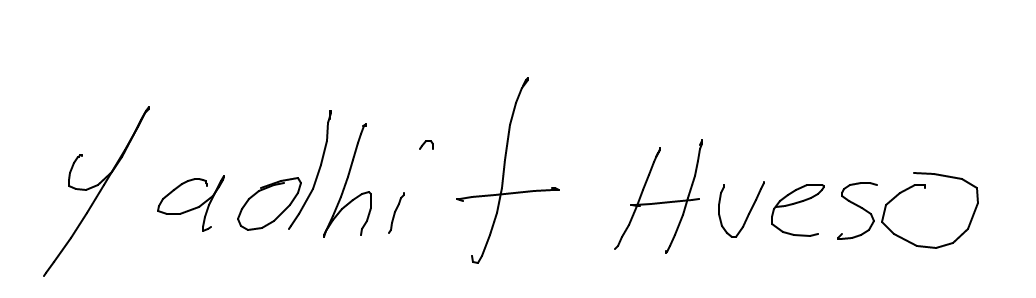 Yadhit Hueso